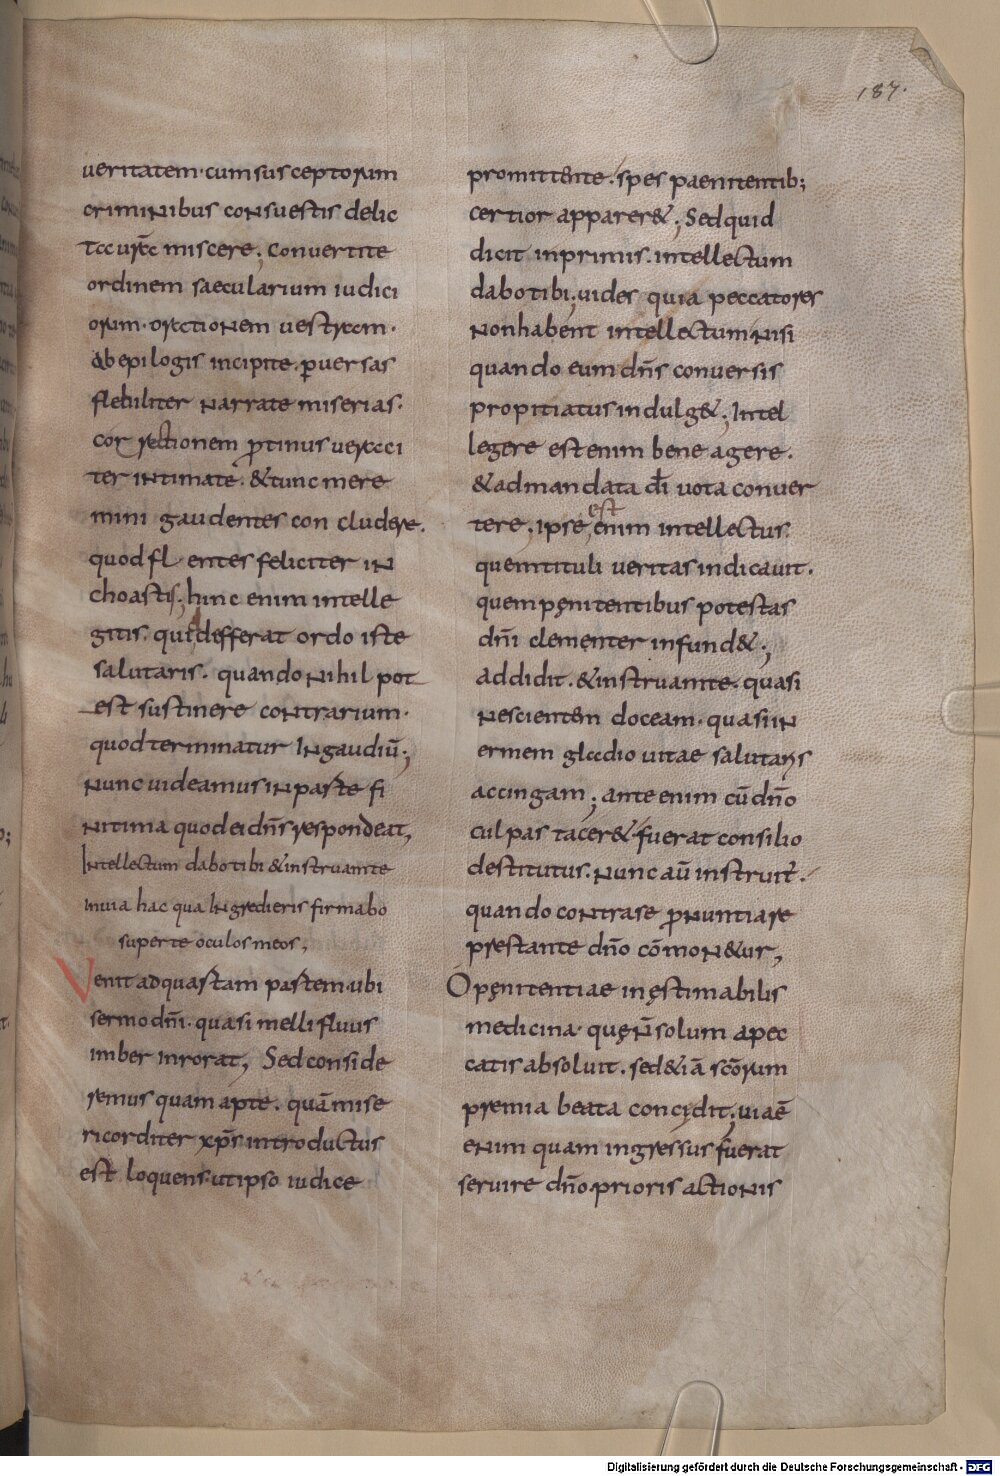 187.
ueritatem· cum susceptorum
criminibus consuestis delic
ta ur̄a miscere; Conuertite
ordinem saecularium iudici
orum· orationem uestram·
Ab epilogis incipite. ꝑuersas
flebiliter narrate miserias·
correctionem ꝓtinus ueraci
ter intimate. &tunc mere
mini gaudentes concludere.
quod fl entes feliciter in
choastis; hinc enim intelle
gitis. quid efferat ordo iste
salutaris. quando nihil pot
est sustinere contrarium·
quod terminatur In gaudiū;
Nunc uideamus in parte fi
nitima quod ei dn̄s respondeat,
Intellectum dabo tibi &instruam te
in uia hac qua Ingredieris firmabo
super te oculos meos,
Venit ad quartam partem· ubi
sermo dn̄i· quasi mellifluus
imber inrorat, Sed conside
remus quam apte. quā mise
ricorditer xp̄s introductus
est loquens· ut ipso iudice
promittente. spes paenitentib;
certior apparer&; Sed quid
dicit inprimis. intellectum
dabo tibi; uides quia peccatores
non habent intellectum· nisi
quando eum dn̄s conuersis
propitiatus indulg&; Intel
legere est enim bene agere.
&ad mandata dī uota conuer
tere. ipse est enim intellectus.
quem tituli ueritas indicauit.
quem pęnitentibus potestas
dn̄i clementer infund&;
addidit. &instruam te. quasi
nescientem doceam· quasi in
ermem gladio uitae salutaris
accingam; ante enim cū dn̄o
culpas tacer& fuerat consilio
destitutus. Nunc aū instruit̄.
quando contra se ꝓnuntiare
prestante dn̄o cōmon&ur,
O pęnitentiae inęstimabilis
medicina· quę n̄ solum a pec
catis absoluit. sed &iā sc̄orum
premia beata concidit; uiaē
enim quam ingressus fuerat
seruire dn̄o· prioris actionis
Digitalisierung gefördert durch die Deutsche Forschungsgemeinschaft - DFG